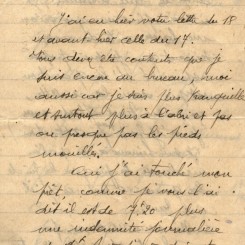 J'ai eu hier votre lettre du 18
et avant-hier celle du 17.
Vous devez être contents que je
suis encore au bureau, moi
aussi car je suis plus tranquille
et surtout plus à l'abri et pas
ou presque pas les pieds
mouillés.
Oui j'ai touché mon
prêt, comme je vous l'ai
dit il est de 7.20 plus
une indemnité journalière